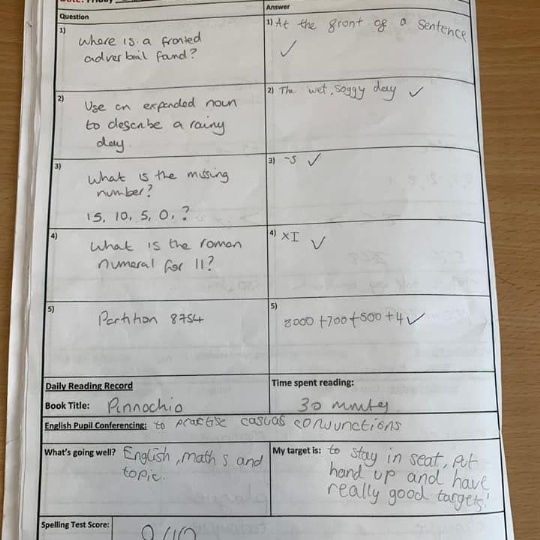 Question
Answer
1)
Where is a fronted
adverbail fand?
1) At the front of a sentence
2)
Use an expended noun
to describe a rainy
day.
2) The wet, soggy day
3)
What is the missing
number?
15, 10, 5, 0, ?
3) -5
4)
What is the roman
numeral for 11?
4) XI
5)
Partition 8754
5)
8000 +700+500+4
Daily Reading Record
Time spent reading:
Book Title: Pinnochio
30 minutes
English Pupil Conferencing: to practise casual conjunctions
What's going well? English, maths and
topic.
My target is: to stay in seat, put
hand up and have
really good targets!
Spelling Test Score: